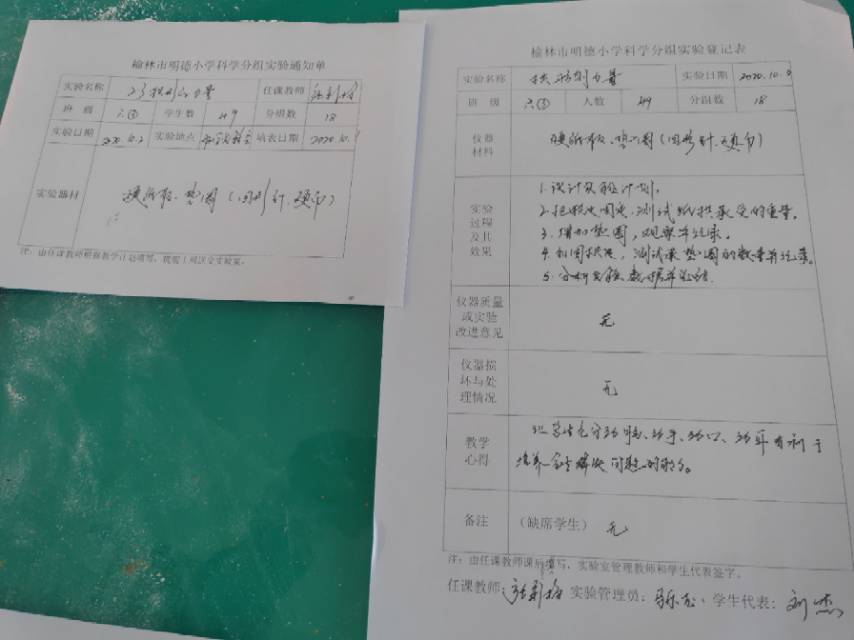 榆林市明德小学科学分组实验通知单
实验名称 拱形的力量 任课教师
班 级 六③ 学生数 49 分组数 18
实验日期 2020.10. 实验地点 填表日期 2020.10.
实验器材 硬纸板、垫圈(回形针、硬币)
注:由任课教师根据教学计划填写,提前1周送交实验室。
榆林市明德小学科学分组实验登记表
实验名称 拱形的力量 实验日期 2020.10.9
班 级 六③ 人数 49 分组数 18
仪器材料 硬纸板、垫圈(回形针、硬币)
实验过程及其效果
1.设计实验计划。
2.把拱足固定,测试纸拱承受的重量。
3.增加垫圈,观察并记录。
4. 测试承垫圈的数量并记录。
5.分析实验数据并总结.
仪器质量或实验改进意见 无
仪器损坏与处理情况 无
教学心得
让学生充分动脑、动手、动口、动耳有利于
培养 解决问题的能力。
备注 (缺席学生) 无
注:由任课教师课后填写,实验室管理教师和学生代表签字。
任课教师: 实验管理员: 学生代表: 刘杰